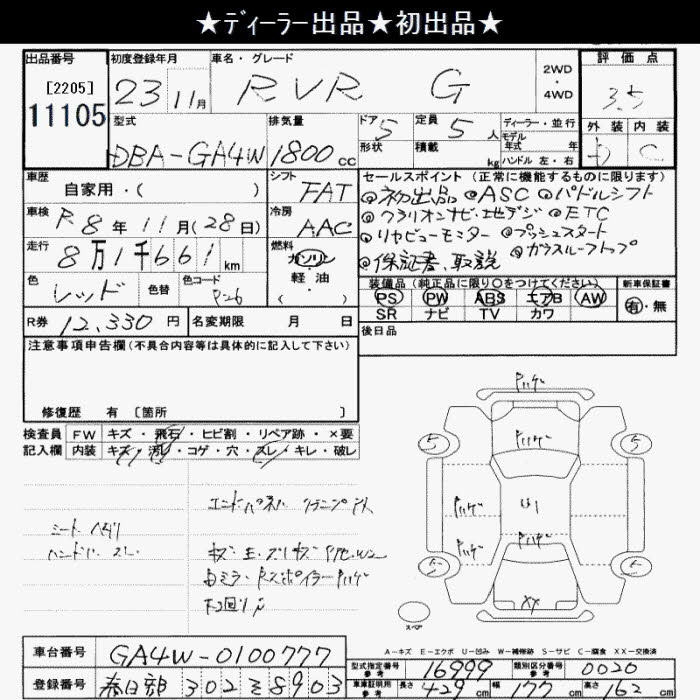 ★ディーラー出品★初出品★
出品番号
[2205]
11105
初度登録年月
23 11月
車名・グレード
RVR G
2WD
・
4WD
評価点
3.5
外装 内装
D C
型式
DBA-GA4W
排気量
1800 cc
ドア 5
形状
定員 5 人
積載 kg
ディーラー・並行
モデル
年式 年
ハンドル 左・右
車歴
自家用・( )
シフト
FAT
セールスポイント (正常に機能するものに限ります)
◎初出品 ◎ASC ◎パドルシフト
◎クラリオンナビ・地デジ ◎ETC
◎リヤビューモニター ◎プッシュスタート
◎保証書、取説 ◎ガラスルーフトップ
車検
R8年11月(28日)
冷房
AAC
走行
8万1千661km
燃料
ガソリン
軽・油
( )
色
レッド
色替
色コード
P26
装備品 (純正品に限り○をつけてください)
PS PW ABS エアB AW
SR ナビ TV カワ
新車保証書
有・無
R券 12,330 円
名変期限 月 日
後日品
注意事項申告欄(不具合内容等は具体的に記入して下さい)
修復歴 有 [箇所 ]
検査員
記入欄
FW キズ・飛石・ヒビ割・リペア跡・×要
内装 キズ・汚レ・コゲ・穴・スレ・キレ・破レ
シート ヘタリ
5 5
5 5
U1
XX
スペア
A-キズ E-エクボ U-凹み W-補修跡 S-サビ C-腐食 XX-交換済
車台番号 GA4W-0100777
登録番号 春日部 302 そ 8903
型式指定番号
参考
16999
類別区分番号
参考
0020
車庫証明用
参考
長さ 429 cm 幅 177 cm 高さ 162 cm